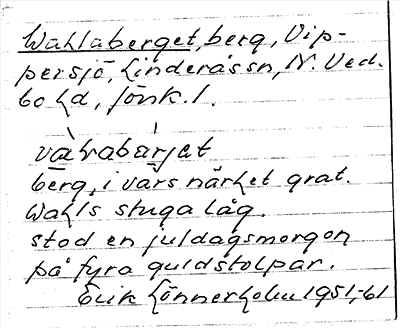 Wahlaberget, berg, Vip-
persjö, Linderås sn, N. Ved-
bo hd, Jönk. l.
vàhrabárjet
berg, i vars närhet grat.
Wahls stuga låg.
stod en juldagsmorgon
på fyra guldstolpar.
Erik Lönnerholm 1951,-61